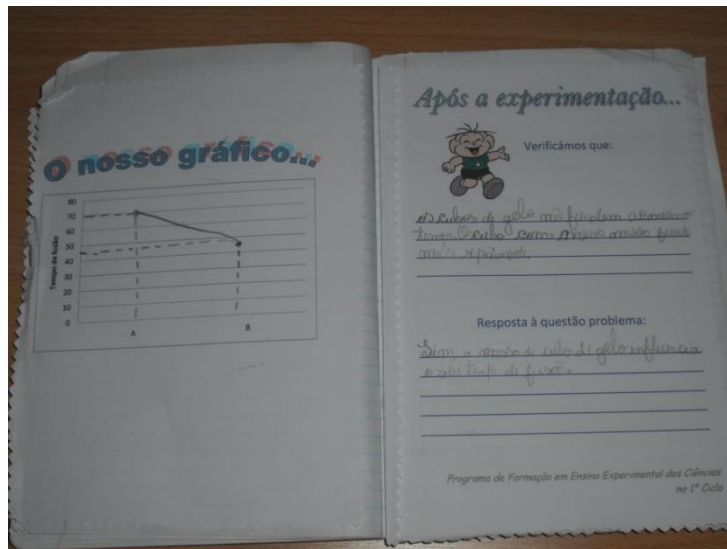 O nosso gráfico...
80
70
60
50
40
30
20
10
0
Tempo de fusão
A
B
Após a experimentação...
Verificámos que:
os cubos de gelo não fundem ao mesmo
tempo. O cubo com menos massa funde
mais rapidamente.
Resposta à questão problema:
Sim, a massa do cubo de gelo influencia
o seu tempo de fusão.
Programa de Formação em Ensino Experimental das Ciências
no 1º Ciclo